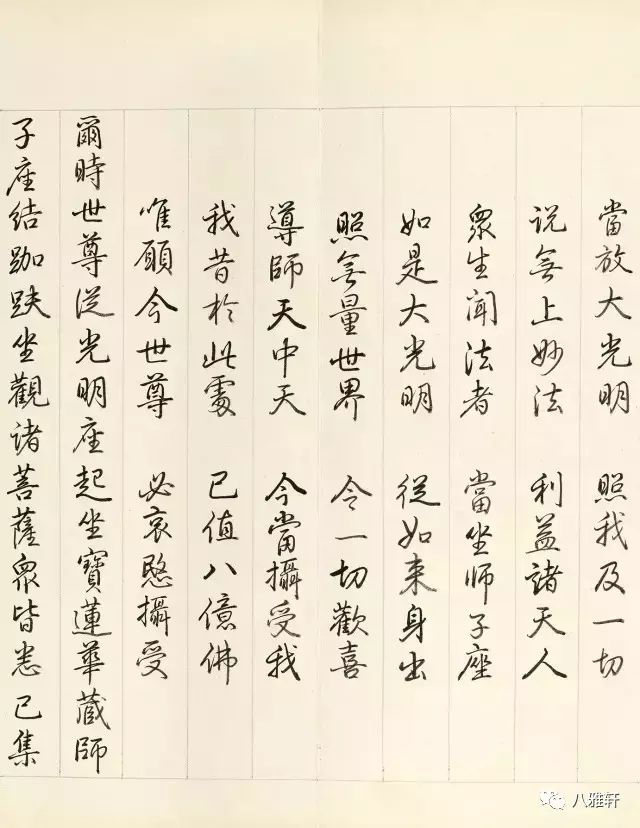 當放大光明　照我及一切
说無上妙法　利益諸天人
衆生聞法者　當坐师子座
如是大光明　從如来身出
照無量世界　令一切歡喜
導師天中天　今當攝受我
我昔於此處　已值八億佛
唯願今世尊　必哀愍攝受
爾時世尊從光明座起坐寶蓮華蔵師
子座结跏趺坐觀诸菩薩衆皆悉已集
八雅轩